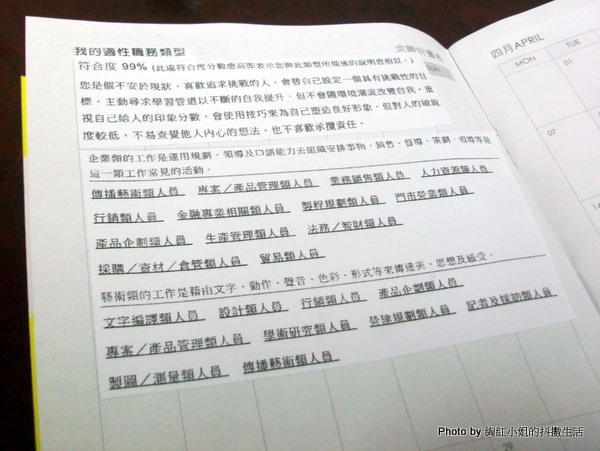 我的適性職務類型
符合度 99% (此處符合度分數愈高即表示您與此類型所描述的說明愈相似。)
您是個不安於現狀，喜歡追求挑戰的人，會替自己設定一個具有挑戰性的目
標，主動尋求學習管道以不斷的自我提升，但不會隨環境潮流改變自我。重
視自己給人的印象分數，會使用技巧來為自己塑造良好形象，但對人的敏銳
度較低，不易查覺他人內心的想法，也不喜歡承攬責任。
企業類的工作是運用規劃、領導及口語能力去組織安排事物，銷售、督導、策劃、領導等是
這一類工作常見的活動。
傳播藝術類人員 專案／產品管理類人員 業務銷售類人員 人力資源類人員
行銷類人員 金融專業相關類人員 製程規劃類人員 門市營業類人員
產品企劃類人員 生產管理類人員 法務／智財類人員
採購／資材／倉管類人員 貿易類人員
藝術類的工作是藉由文字、動作、聲音、色彩、形式等來傳達美、思想及感受。
文字編譯類人員 設計類人員 行銷類人員 產品企劃類人員
專案／產品管理類人員 學術研究類人員 營建規劃類人員 記者及採訪類人員
製圖／測量類人員 傳播藝術類人員
四月APRIL
MON TUE
01
07
29
Photo by 絢紅小姐的抖擻生活